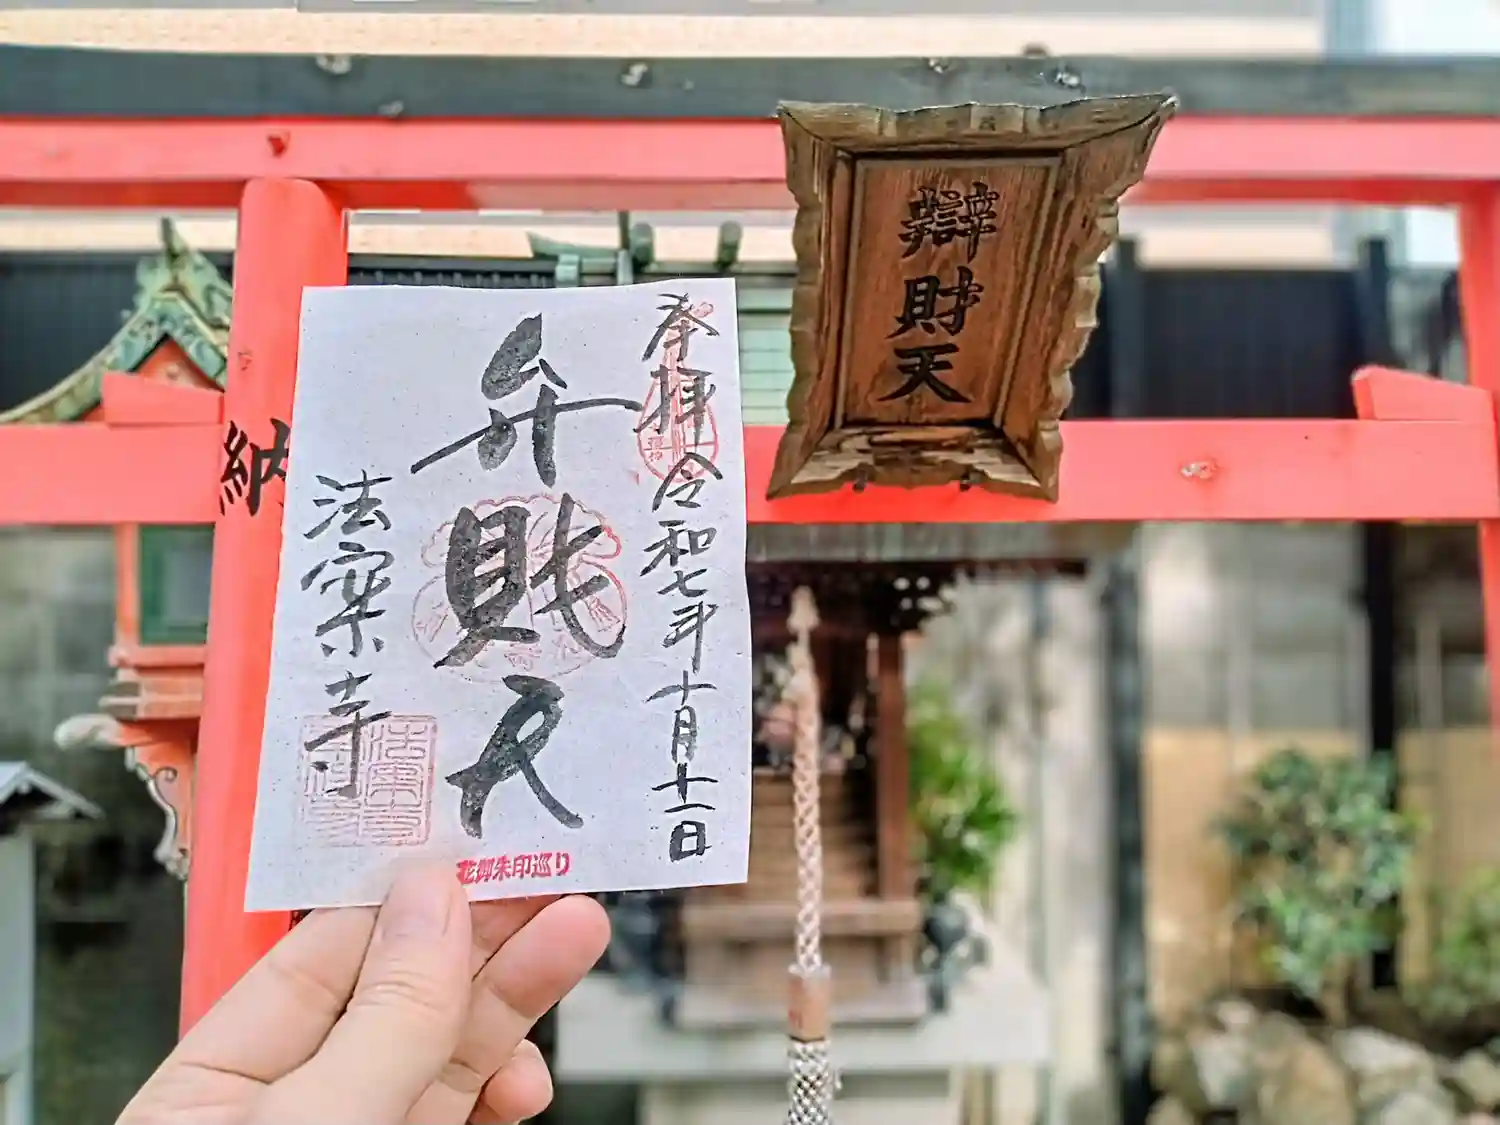 奉拝 令和七年十月十一日
弁財天
法楽寺
花御朱印巡り
辯財天
納